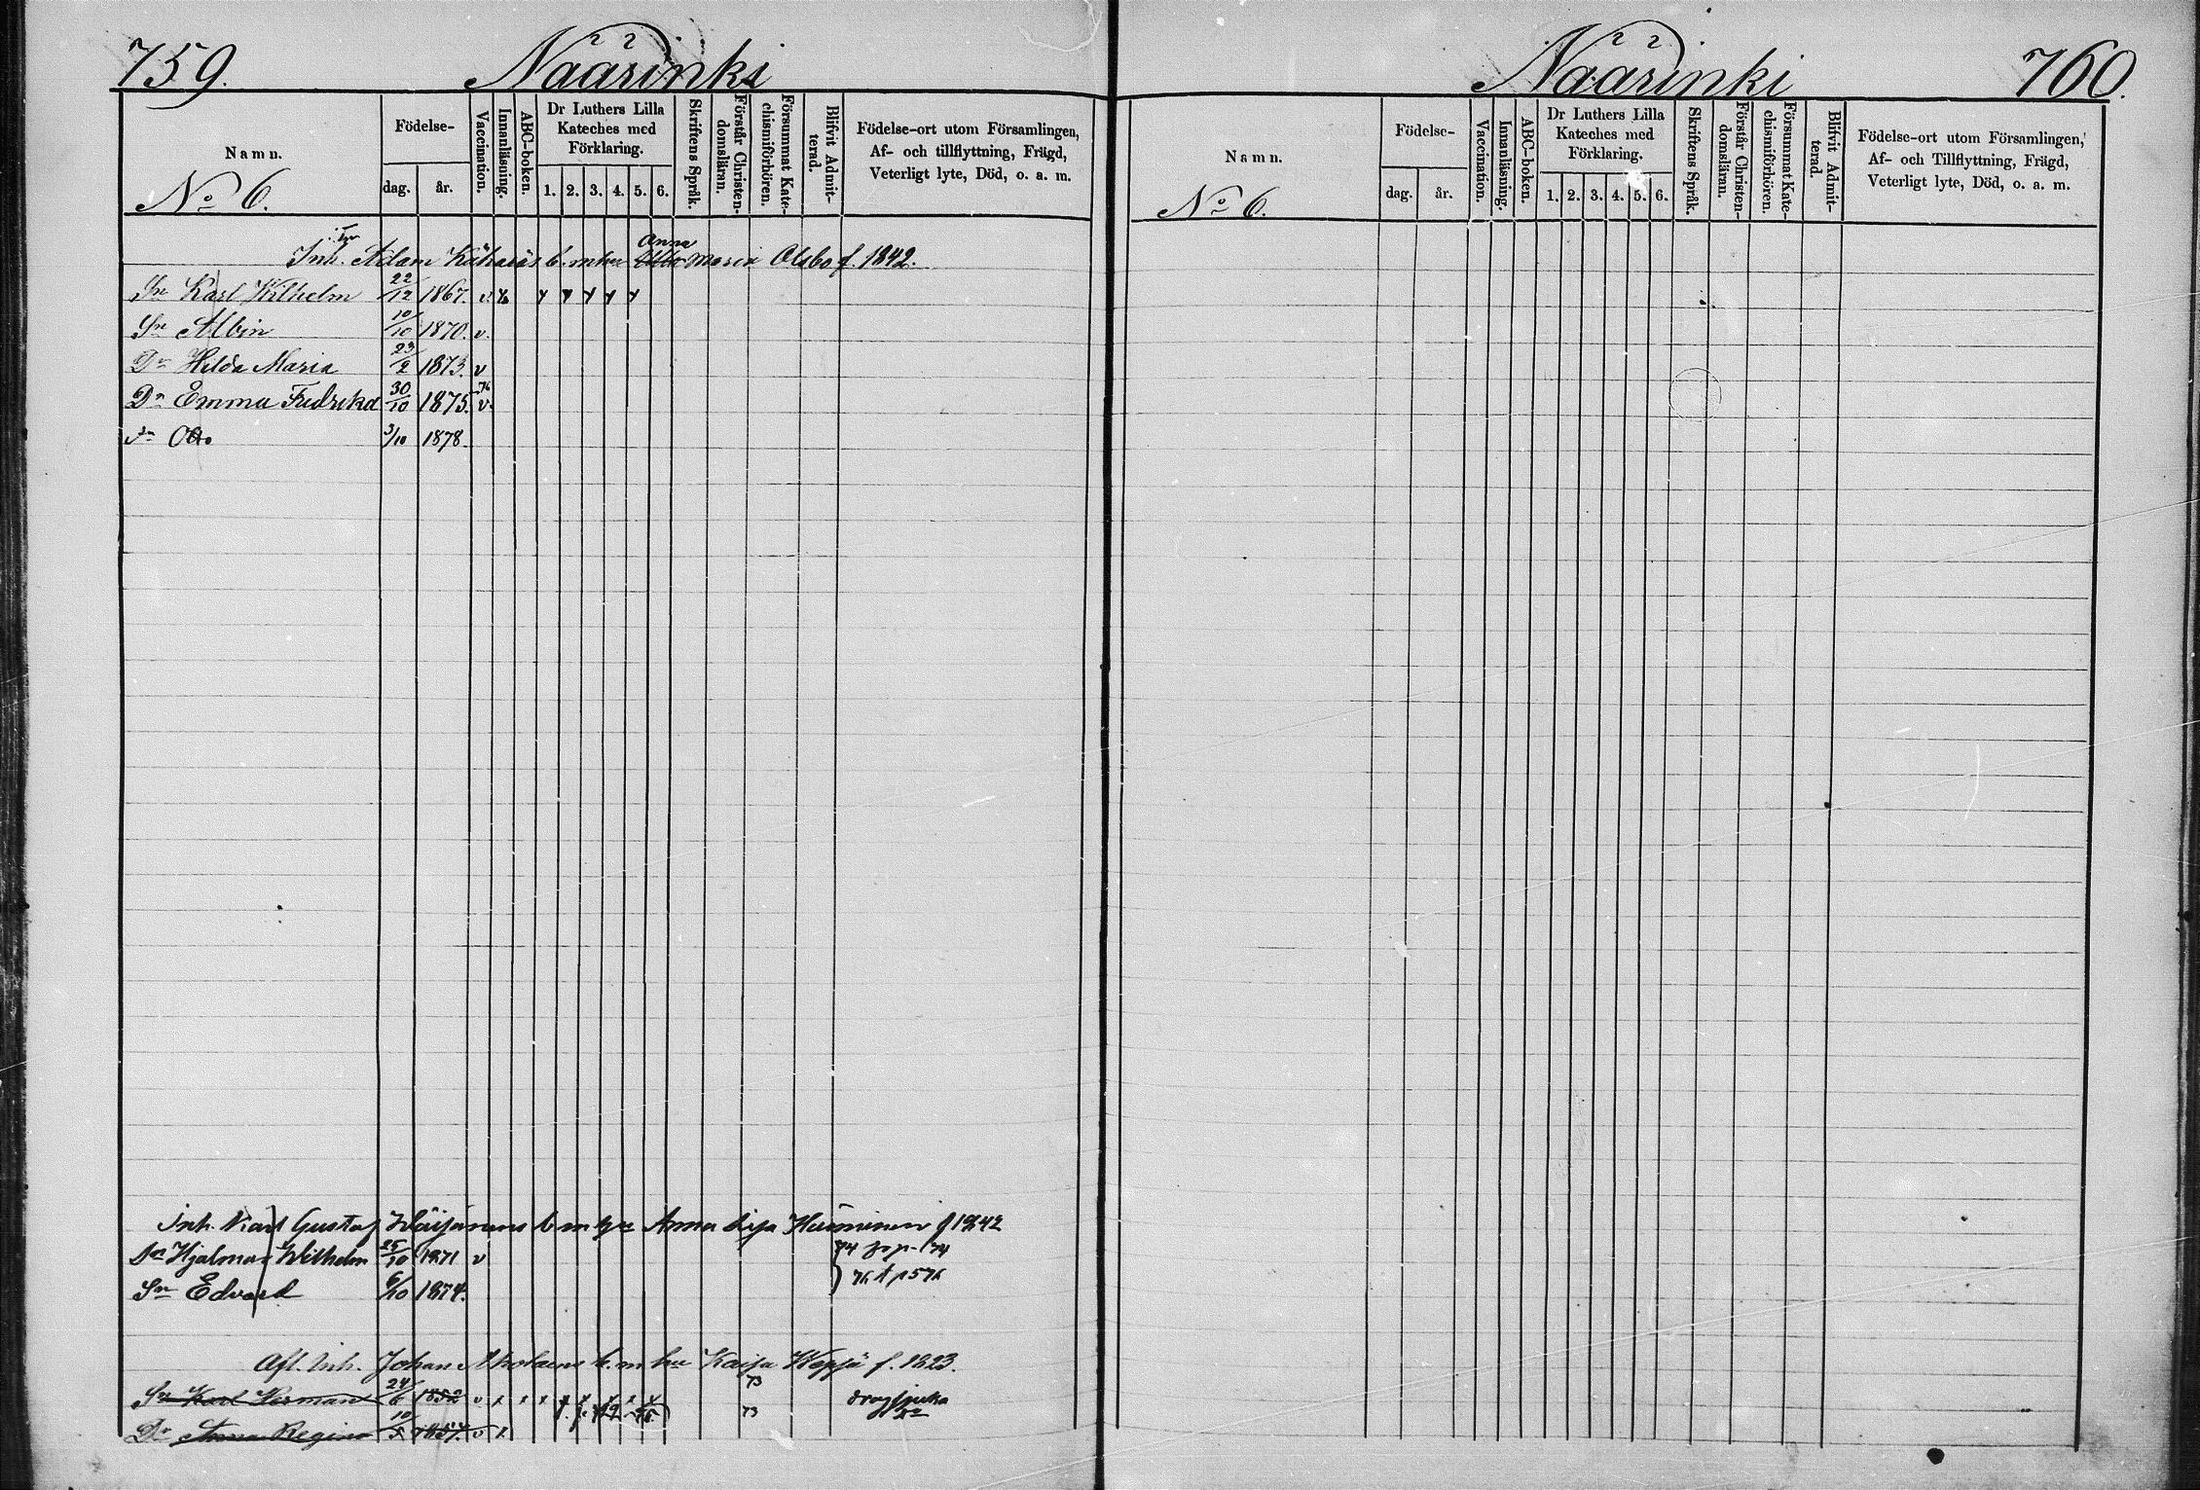 759.
Näärinki
Namn.
Födelse-
dag.
år.
Vaccination.
Innanläsning.
ABC-boken.
Dr Luthers Lilla
Kateches med
Förklaring.
1. 2. 3. 4. 5. 6.
Skriftens Språk.
Förstår Christen-
domsläran.
Försummat Kate-
chismiförhören.
Blifvit Admit-
terad.
Födelse-ort utom Församlingen,
Af- och tillflyttning, Frägd,
Veterligt lyte, Död, o. a. m.
No 6.
Anna
Inh. Adam b. m hu Maria Olsbo f. 1842.
Sn Karl Wilhelm 22/12 1867. v
Sn Albin 10/10 1870. v.
Dr Hilda Maria 23/2 1873. v
76
Dr Emma Fredrika 30/10 1875. v.
Sn Otto 3/10 1878
Inh. Karl Gustaf b m hu Anna Lisa f 1842
Sn Hjalmar Wilhelm 25/10 1871 v
Sn Edvard 6/10 1874.
Afl. Inh. Johan b. m. hu Kaisa f. 1823.
73
Sn Karl Herman 24/6 1852 v x x x
73
Dr Anna Regina 10/5 1857. v x
Näärinki
760.
Namn.
Födelse-
dag.
år.
Vaccination.
Innanläsning.
ABC-boken.
Dr Luthers Lilla
Kateches med
Förklaring.
1. 2. 3. 4. 5. 6.
Skriftens Språk.
Förstår Christen-
domsläran.
Försummat Kate-
chismiförhören.
Blifvit Admit-
terad.
Födelse-ort utom Församlingen,
Af- och Tillflyttning, Frägd,
Veterligt lyte, Död, o. a. m.
No 6.